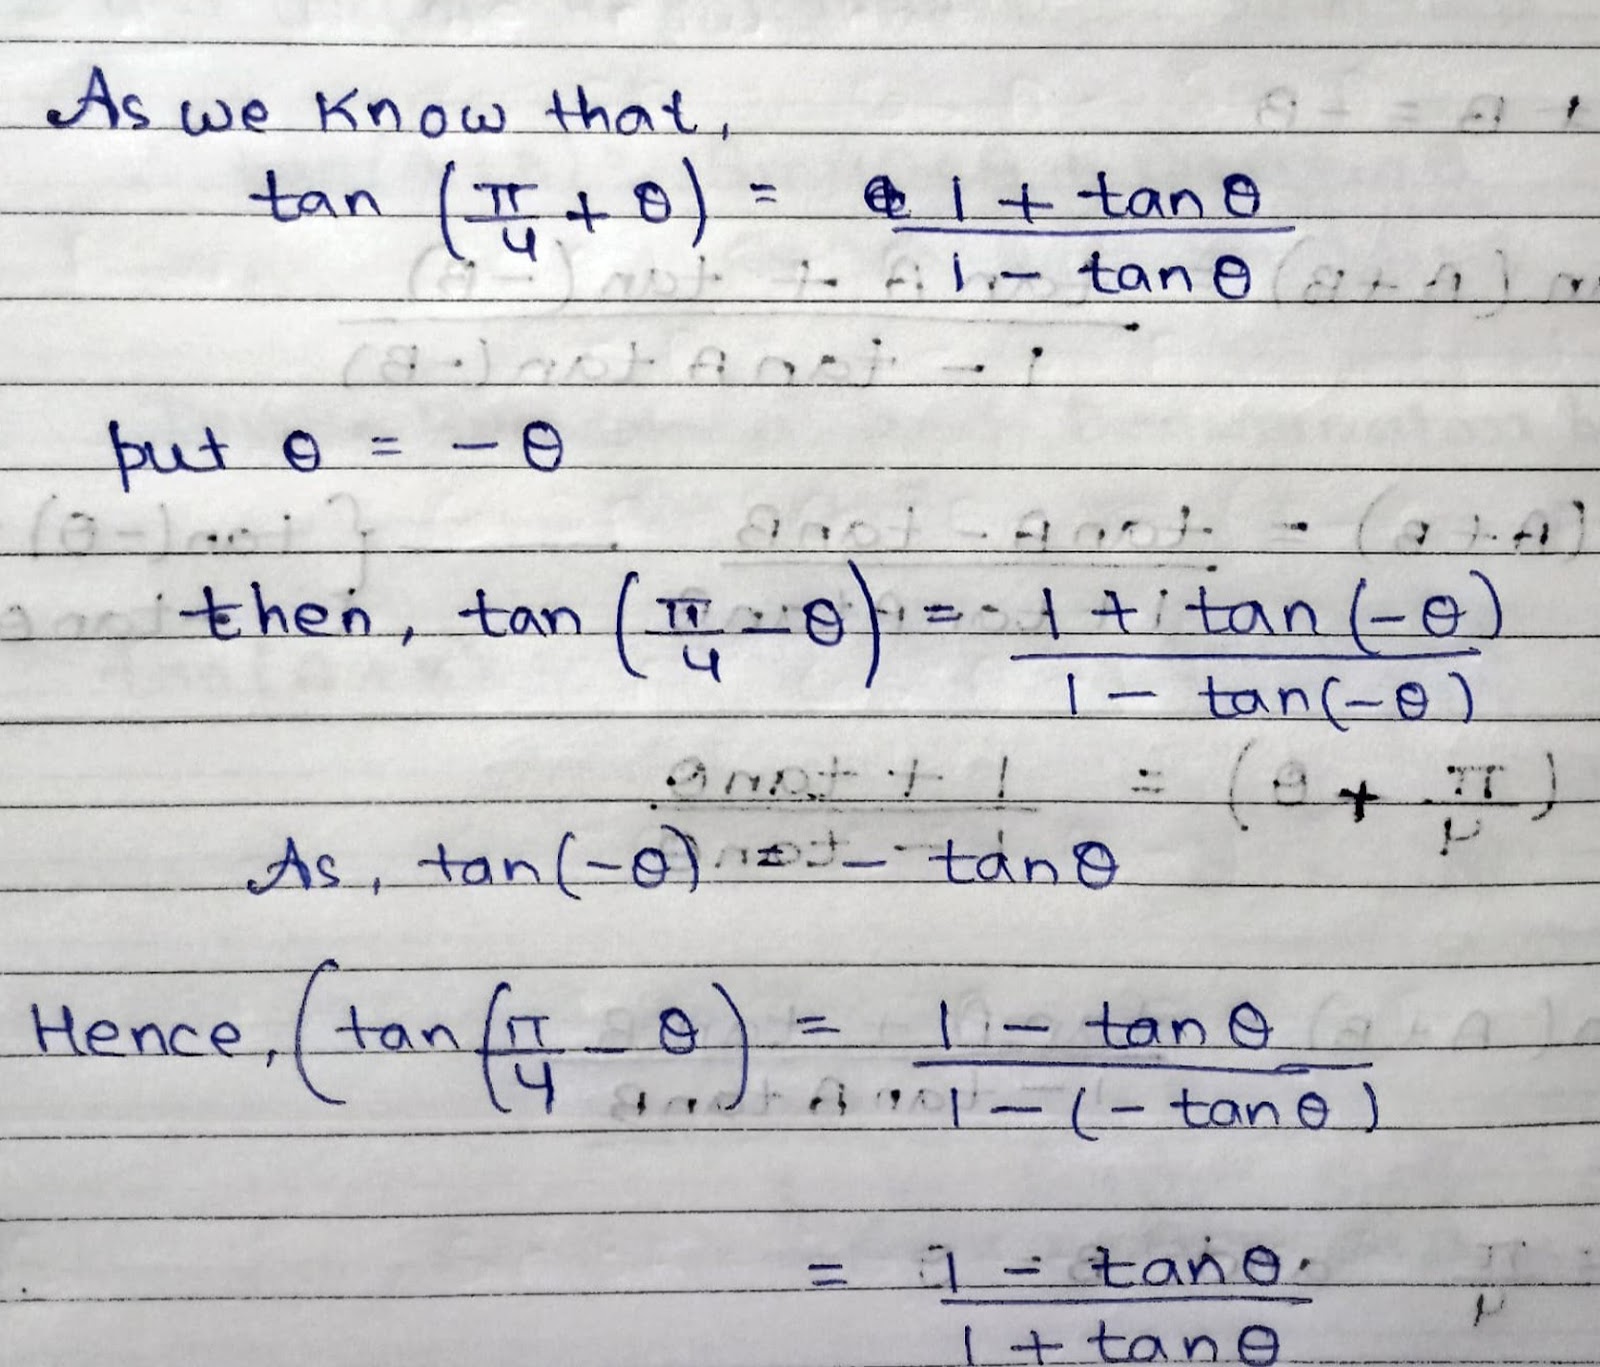 As we know that,
tan (π/4 + θ) = 1 + tan θ / 1 - tan θ
put θ = - θ
then, tan (π/4 - θ) = 1 + tan (-θ) / 1 - tan(-θ)
As, tan(-θ) = - tan θ
Hence, (tan (π/4 - θ) = 1 - tan θ / 1 - (- tan θ)
= 1 - tan θ / 1 + tan θ